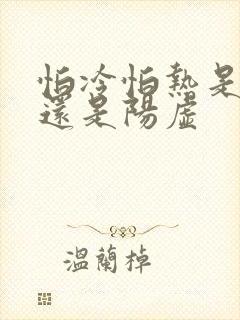 怕冷怕熱是
還是陽虛
溫蘭棹